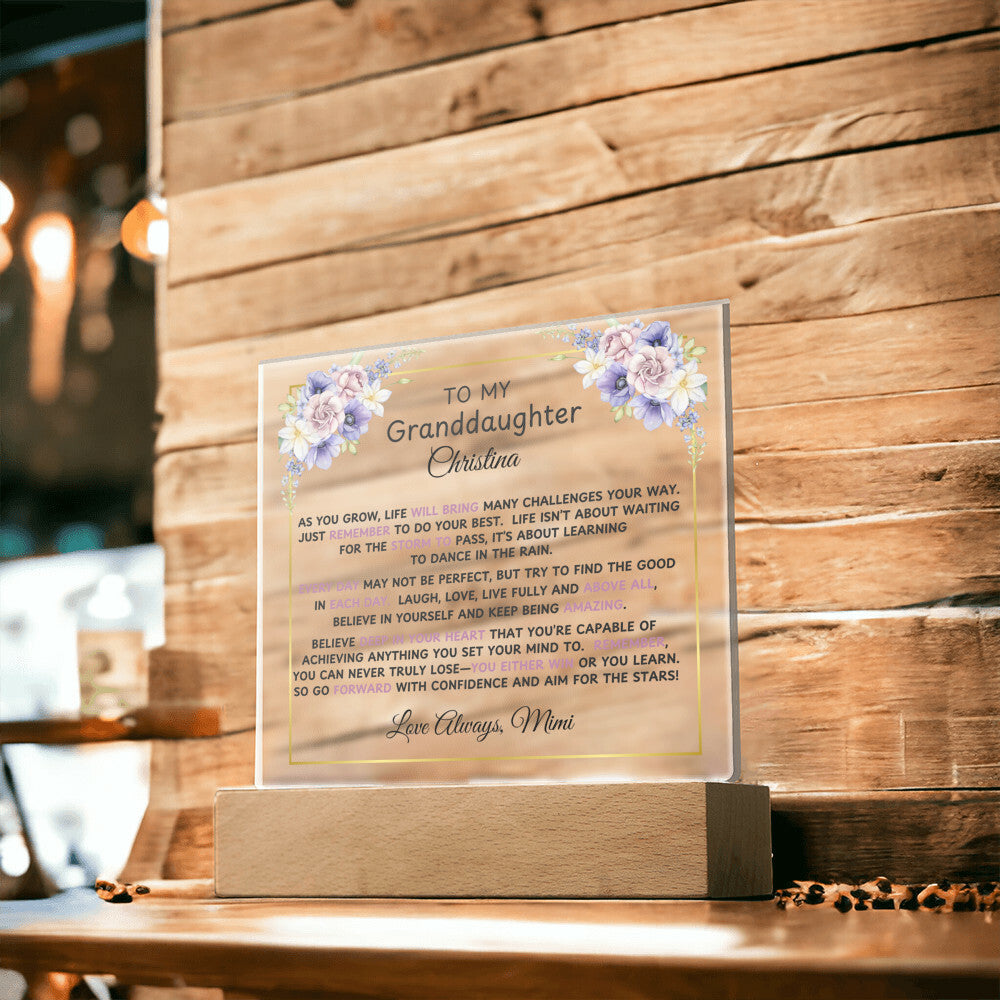 TO MY
Granddaughter
Christina
AS YOU GROW, LIFE WILL BRING MANY CHALLENGES YOUR WAY.
JUST REMEMBER TO DO YOUR BEST. LIFE ISN'T ABOUT WAITING
FOR THE STORM TO PASS, IT'S ABOUT LEARNING
TO DANCE IN THE RAIN.
EVERY DAY MAY NOT BE PERFECT, BUT TRY TO FIND THE GOOD
IN EACH DAY. LAUGH, LOVE, LIVE FULLY AND ABOVE ALL,
BELIEVE IN YOURSELF AND KEEP BEING AMAZING.
BELIEVE DEEP IN YOUR HEART THAT YOU'RE CAPABLE OF
ACHIEVING ANYTHING YOU SET YOUR MIND TO. REMEMBER,
YOU CAN NEVER TRULY LOSE—YOU EITHER WIN OR YOU LEARN.
SO GO FORWARD WITH CONFIDENCE AND AIM FOR THE STARS!
Love Always, Mimi